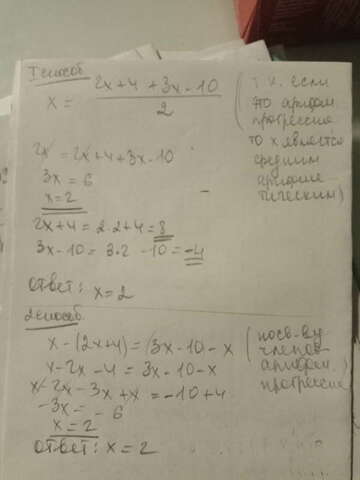 I способ
x = (2x+4+3x-10)/2
(т.к. если это арифм. прогрессия то x является средним арифметическим)
2x = 2x+4+3x-10
3x = 6
x=2
2x+4 = 2·2+4=8
3x-10 = 3·2 -10=-4
Ответ: x=2
2 способ
x-(2x+4)=(3x-10)-x
(по св-ву членов арифм. прогрессии)
x-2x-4=3x-10-x
x-2x-3x+x=-10+4
-3x=-6
x=2
Ответ: x=2